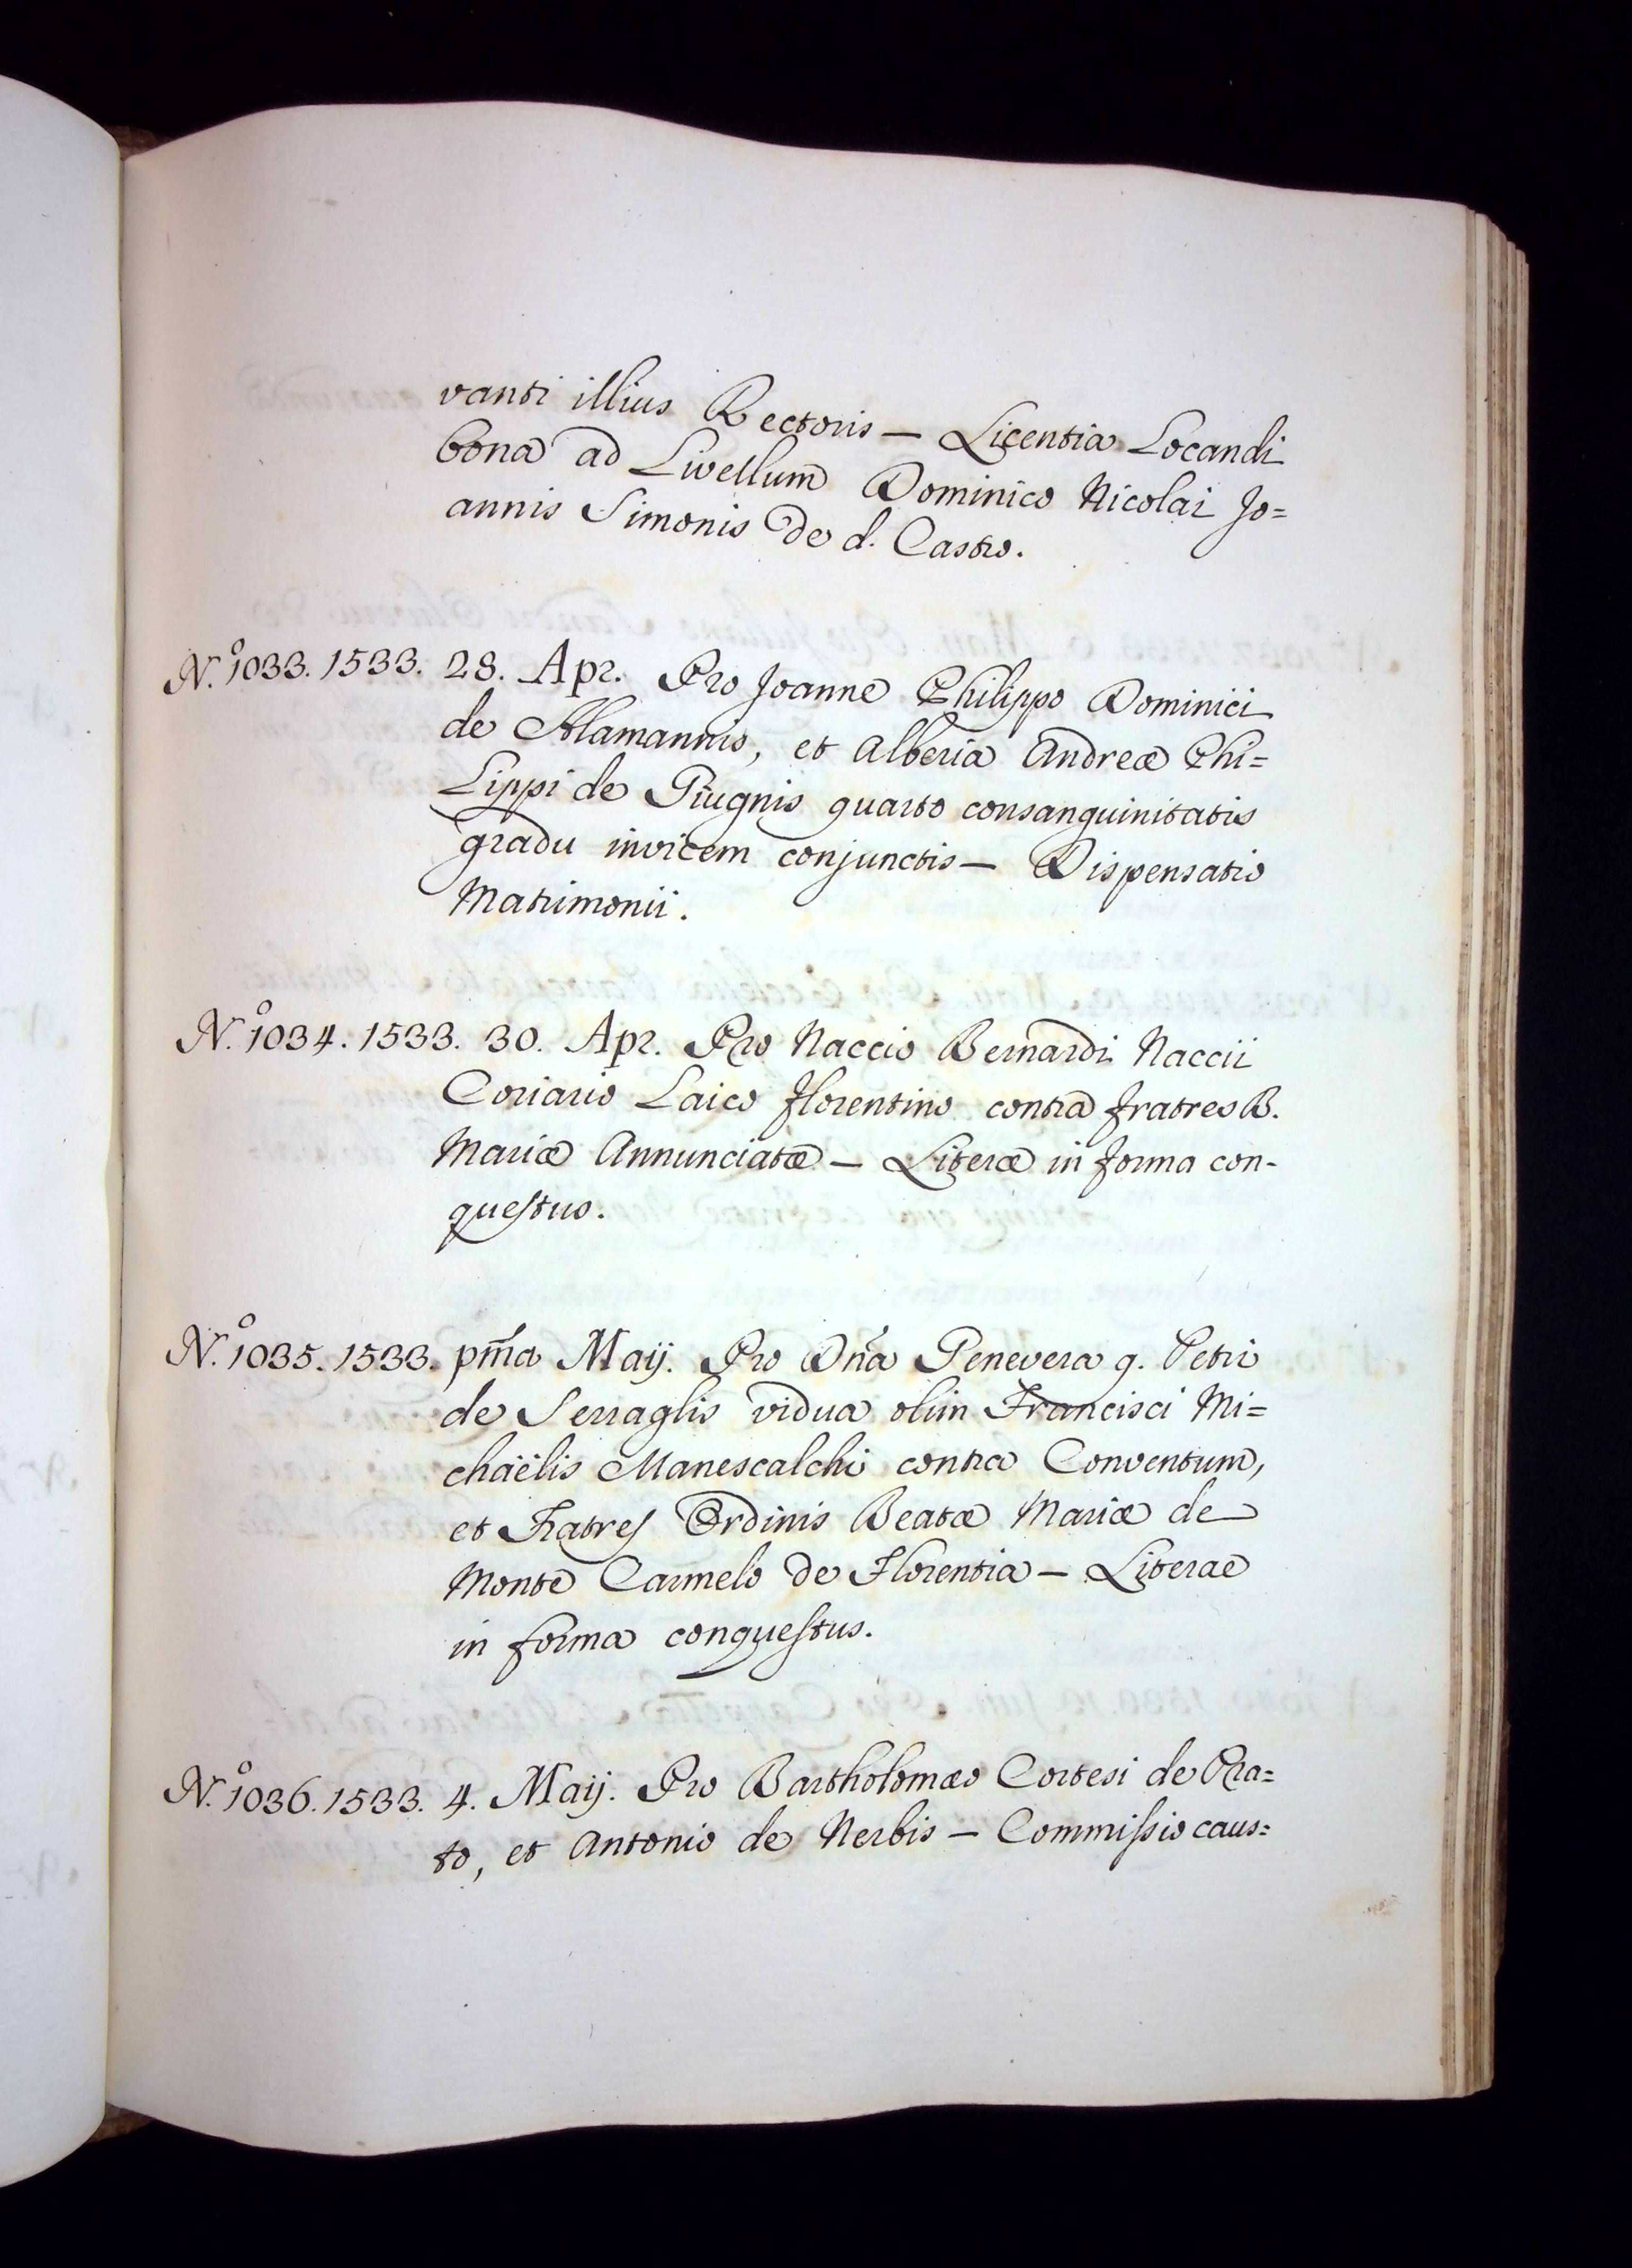 vanti illius Rectoris — Licentia Locandi
bona ad Livellum Dominico Nicolai Jo=
annis Simonis de d. Castro.
N.º 1033. 1533. 28. Apr. Pro Joanne Philippo Dominici
de Alamannis, et Alberia Andreæ Phi=
Lippi de Giugnis quarto consanguinitatis
gradu invicem conjunctis — Dispensatio
Matrimonii.
N.º 1034. 1533. 30. Apr. Pro Naccio Bernardi Naccii
Coriario Laico Florentino contra fratres B.
Mariæ Annunciatæ — Literæ in forma con-
questus.
N.º 1035. 1533. pm̃a Maij. Pro Dñа Genevera q. Petri
de Serraglis vidua olim Francisci Mi=
chaëlis Manescalchi contra Conventum,
et Fratres Ordinis Beatæ Mariæ de
Monte Carmelo de Florentia — Literae
in forma conquestus.
N.º 1036. 1533. 4. Maij. Pro Bartholomæo Cortesi de Pra=
to, et Antonio de Nerbis — Commissio caus=